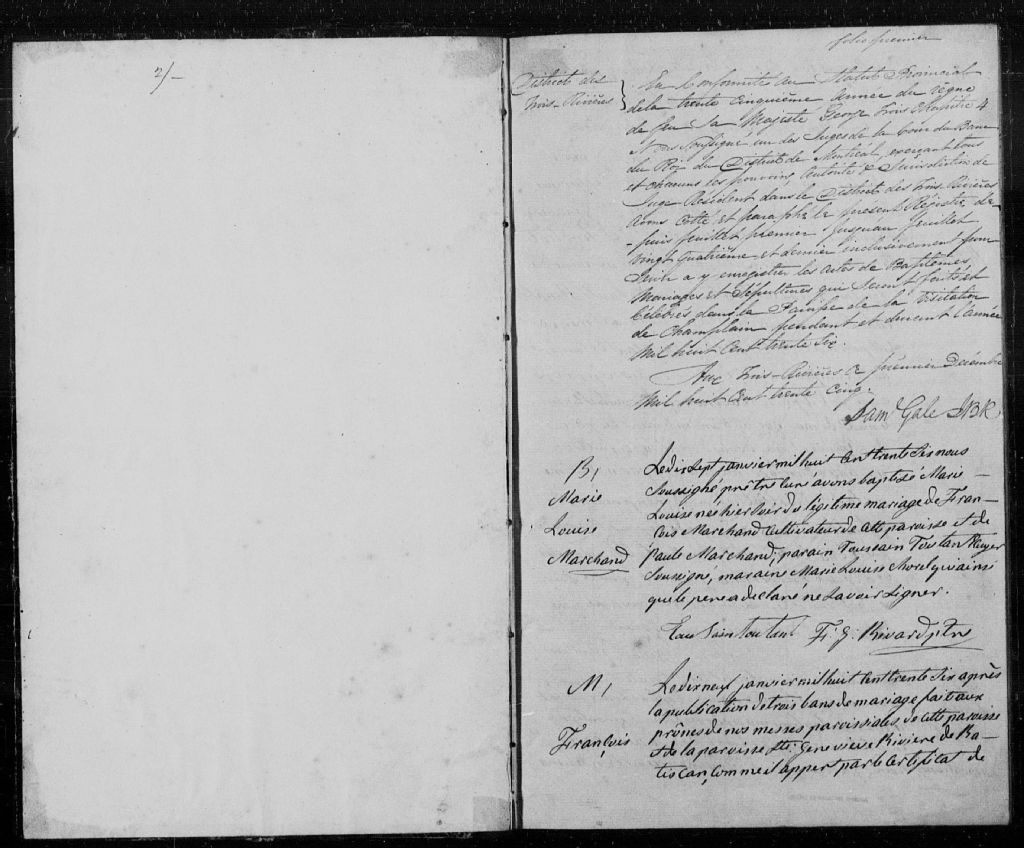 2/-
folio premier
District des
Trois-Rivières
En Conformité au Statut Provincial
de la trente cinquième Année du règne
de feu Sa Majesté George Trois Chapitre 4
Nous Soussigné un des Juges de la Cour du Banc
du Roi du District de Montréal, exerçant tous
et chacuns les pouvoirs, autorité & Jurisdiction de
Juge Résident dans le District des Trois Rivières
avons Cotté et paraphé le présent Régistre, de-
-puis feuillet premier jusquau feuillet
vingt quatrième et dernier inclusivement pour
Servir a y enregistrer les actes de Baptêmes,
Mariages et Sépultures qui Seront faits et
Célébrés dans la Paroisse de la Visitation
de Champlain pendant et durant l'année
Mil huit Cent trente Six.
Aux Trois-Rivières ce premier Décembre
Mil huit Cent trente Cinq.
Sam Gale JBR
B,
Marie
Louise
Marchand
Le dix sept janvier mil huit Cent trente Six nous
Soussigné prêtre Curé avons baptisé Marie
Louise née hier Soir du légitime mariage de Fran-
cois Marchand Cultivateur de Cette paroisse et de
Paule Marchand; parain Toussain Toutan
Soussigné, maraine Marie Louise Morel qui ainsi
que le pere a declaré ne Savoir Signer.
Toutant F. G. Rivard ptre
M,
François
Le dix neuf janvier mil huit Cent trente Six après
la publication de trois bans de mariage fait aux
prônes de nos messes paroissiales, de Cette paroisse
et de la paroisse Ste: Genevieve Riviere de Ba-
tiscan, Comme il appert par le Certificat de